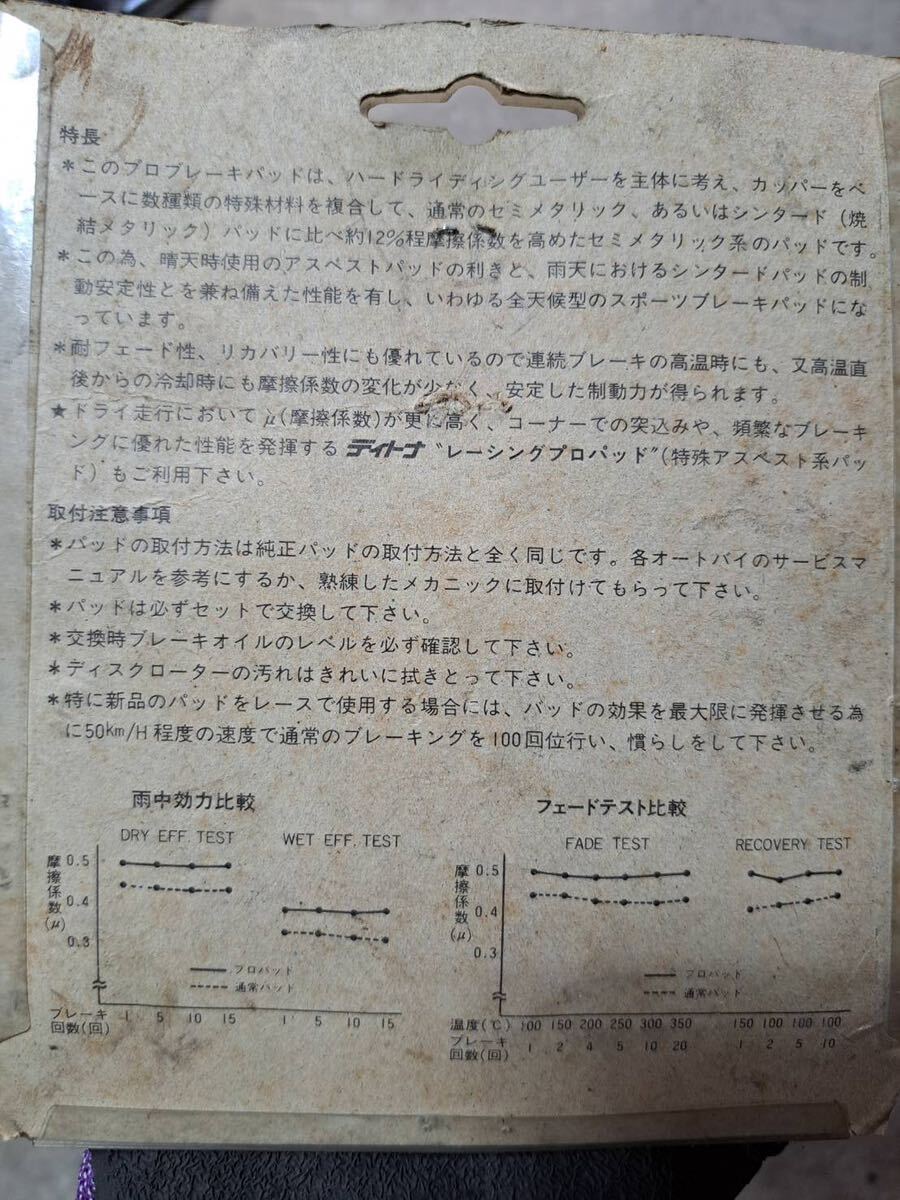 特長
*このプロブレーキパッドは、ハードライディングユーザーを主体に考え、カッパーをベ
ースに数種類の特殊材料を複合して、通常のセミメタリック、あるいはシンタード（焼
結メタリック）パッドに比べ約12%程摩擦係数を高めたセミメタリック系のパッドです。
*この為、晴天時使用のアスベストパッドの利きと、雨天におけるシンタードパッドの制
動安定性とを兼ね備えた性能を有し、いわゆる全天候型のスポーツブレーキパッドにな
っています。
*耐フェード性、リカバリー性にも優れているので連続ブレーキの高温時にも、又高温直
後からの冷却時にも摩擦係数の変化が少なく、安定した制動力が得られます。
★ドライ走行においてμ(摩擦係数)が更に高く、コーナーでの突込みや、頻繁なブレーキ
ングに優れた性能を発揮するデイトナ“レーシングプロパッド”(特殊アスベスト系パッ
ド）もご利用下さい。
取付注意事項
*パッドの取付方法は純正パッドの取付方法と全く同じです。各オートバイのサービスマ
ニュアルを参考にするか、熟練したメカニックに取付けてもらって下さい。
*パッドは必ずセットで交換して下さい。
*交換時ブレーキオイルのレベルを必ず確認して下さい。
*ディスクローターの汚れはきれいに拭きとって下さい。
*特に新品のパッドをレースで使用する場合には、パッドの効果を最大限に発揮させる為
に50km/H程度の速度で通常のブレーキングを100回位行い、慣らしをして下さい。
雨中効力比較
DRY EFF. TEST WET EFF. TEST
摩擦係数(μ)
0.5
0.4
0.3
プロパッド
通常パッド
ブレーキ回数(回) 1 5 10 15 1 5 10 15
フェードテスト比較
FADE TEST RECOVERY TEST
摩擦係数(μ)
0.5
0.4
0.3
プロパッド
通常パッド
温度(℃) 100 150 200 250 300 350 150 100 100 100
ブレーキ回数(回) 1 2 4 5 10 20 1 2 5 10